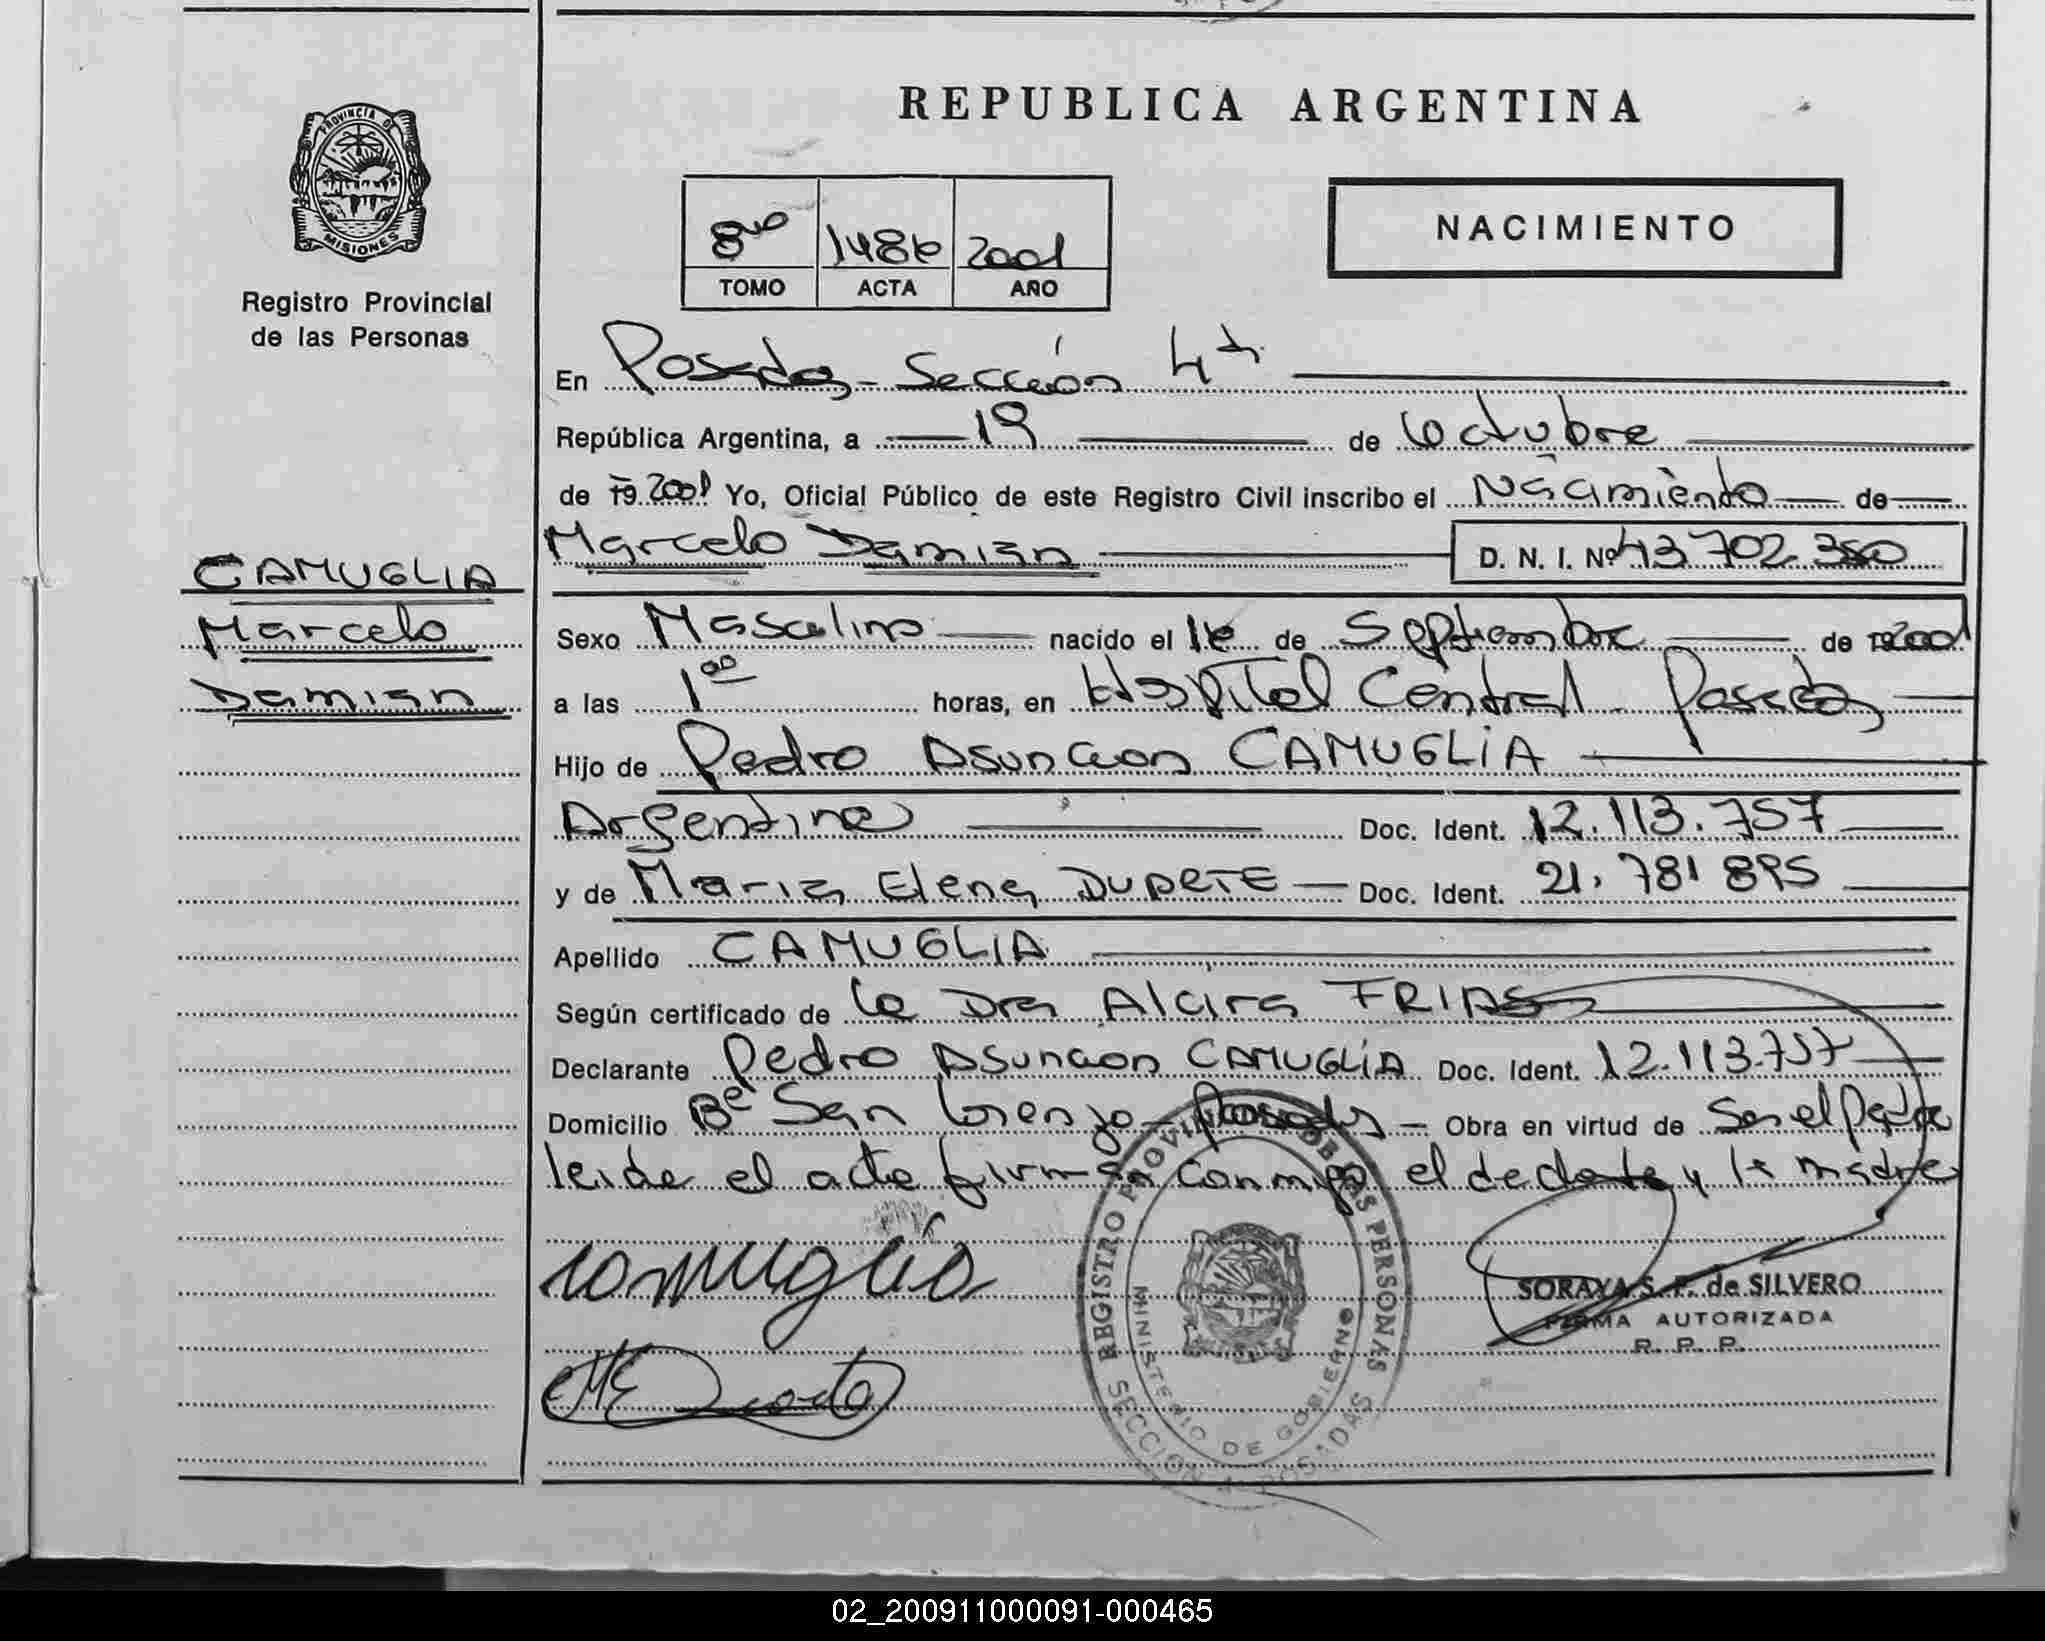 REPUBLICA ARGENTINA
PROVINCIA DE
MISIONES
Registro Provincial
de las Personas
NACIMIENTO
8vo 1486 2001
TOMO ACTA AÑO
En Posadas - Sección 4ta
República Argentina, a 19 de Octubre
de 19 2001 Yo, Oficial Público de este Registro Civil inscribo el Nacimiento de
Marcelo Damian D. N. I. Nº 43 702 350
CAMUGLIA
Marcelo
Damian
Sexo Masculino nacido el 16 de Septiembre de 19 2001
a las 1 00 horas, en Hospital Central Posadas
Hijo de Pedro Asuncion CAMUGLIA
Argentino Doc. Ident. 12.113.757
y de Maria Elena Doc. Ident. 21.781 895
Apellido CAMUGLIA
Según certificado de la Dra Alcira FRIAS
Declarante Pedro Asuncion CAMUGLIA Doc. Ident. 12.113.757
Domicilio Bº San Lorenzo - Posadas - Obra en virtud de Ser el Padre
leida el acta firman conmigo el declarante y la madre
camuglia
SORAYA S. F. de SILVERO
FIRMA AUTORIZADA
R. P. P.
REGISTRO PROVINCIAL DE LAS PERSONAS
MINISTERIO DE GOBIERNO
SECCION 4 POSADAS
02_200911000091-000465